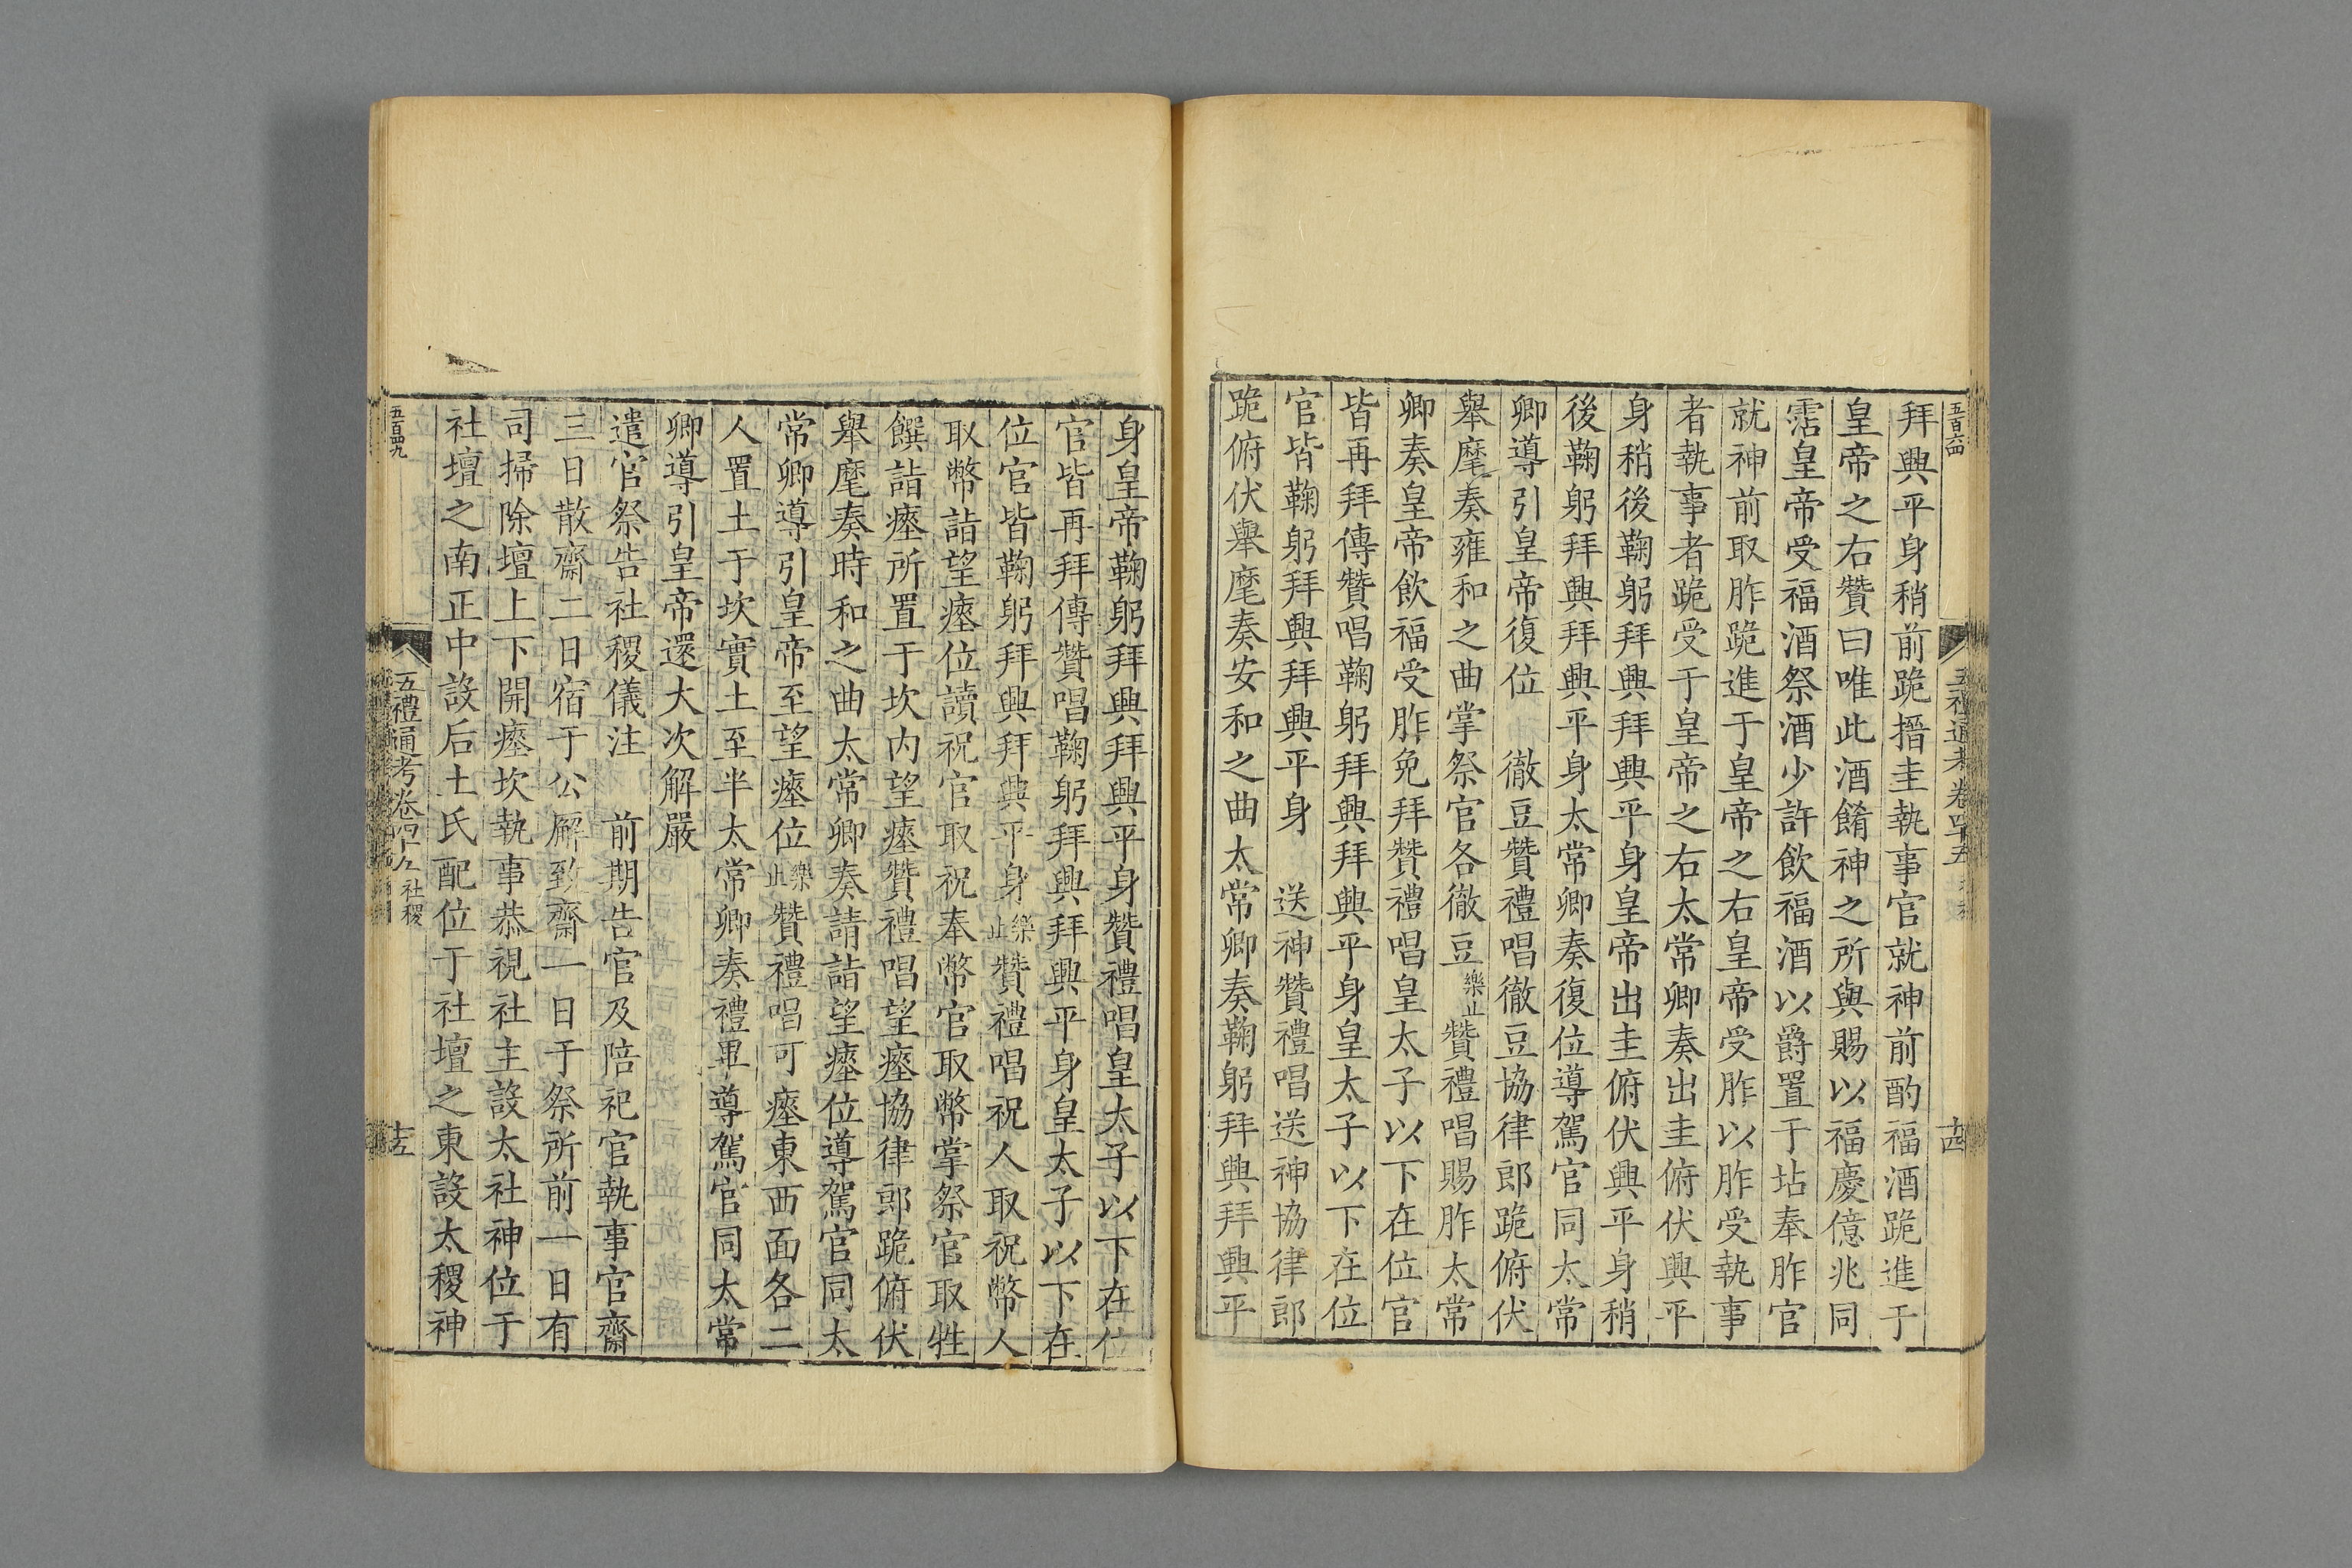 五百六四
五禮通考卷四十五
十四
拜興平身稍前跪搢圭執事官就神前酌福酒跪進于
皇帝之右贊曰唯此酒餚神之所與賜以福慶億兆同
霑皇帝受福酒祭酒少許飲福酒以爵置于坫奉胙官
就神前取胙跪進于皇帝之右皇帝受胙以胙受執事
者執事者跪受于皇帝之右太常卿奏出圭俯伏興平
身稍後鞠躬拜興拜興平身皇帝出圭俯伏興平身稍
後鞠躬拜興拜興平身太常卿奏復位導駕官同太常
卿導引皇帝復位 徹豆贊禮唱徹豆協律郎跪俯伏
舉麾奏雍和之曲掌祭官各徹豆樂止贊禮唱賜胙太常
卿奏皇帝飲福受胙免拜贊禮唱皇太子以下在位官
皆再拜傳贊唱鞠躬拜興拜興平身皇太子以下在位
官皆鞠躬拜興拜興平身 送神贊禮唱送神協律郎
跪俯伏舉麾奏安和之曲太常卿奏鞠躬拜興拜興平
身皇帝鞠躬拜興拜興平身贊禮唱皇太子以下在位
官皆再拜傳贊唱鞠躬拜興拜興平身皇太子以下在
位官皆鞠躬拜興拜興平身樂止贊禮唱祝人取祝幣人
取幣詣望瘞位讀祝官取祝奉幣官取幣掌祭官取牲
饌詣瘞所置于坎内望瘞贊禮唱望瘞協律郎跪俯伏
舉麾奏時和之曲太常卿奏請詣望瘞位導駕官同太
常卿導引皇帝至望瘞位樂止贊禮唱可瘞東西面各二
人置土于坎實土至半太常卿奏禮畢導駕官同太常
卿導引皇帝還大次解嚴
遣官祭告社稷儀注 前期告官及陪祀官執事官齋
三日散齋二日宿于公廨致齋一日于祭所前一日有
司掃除壇上下開瘞坎執事恭視社主設太社神位于
社壇之南正中設后土氏配位于社壇之東設太稷神
五百四九
五禮通考卷四十五 社稷
十五